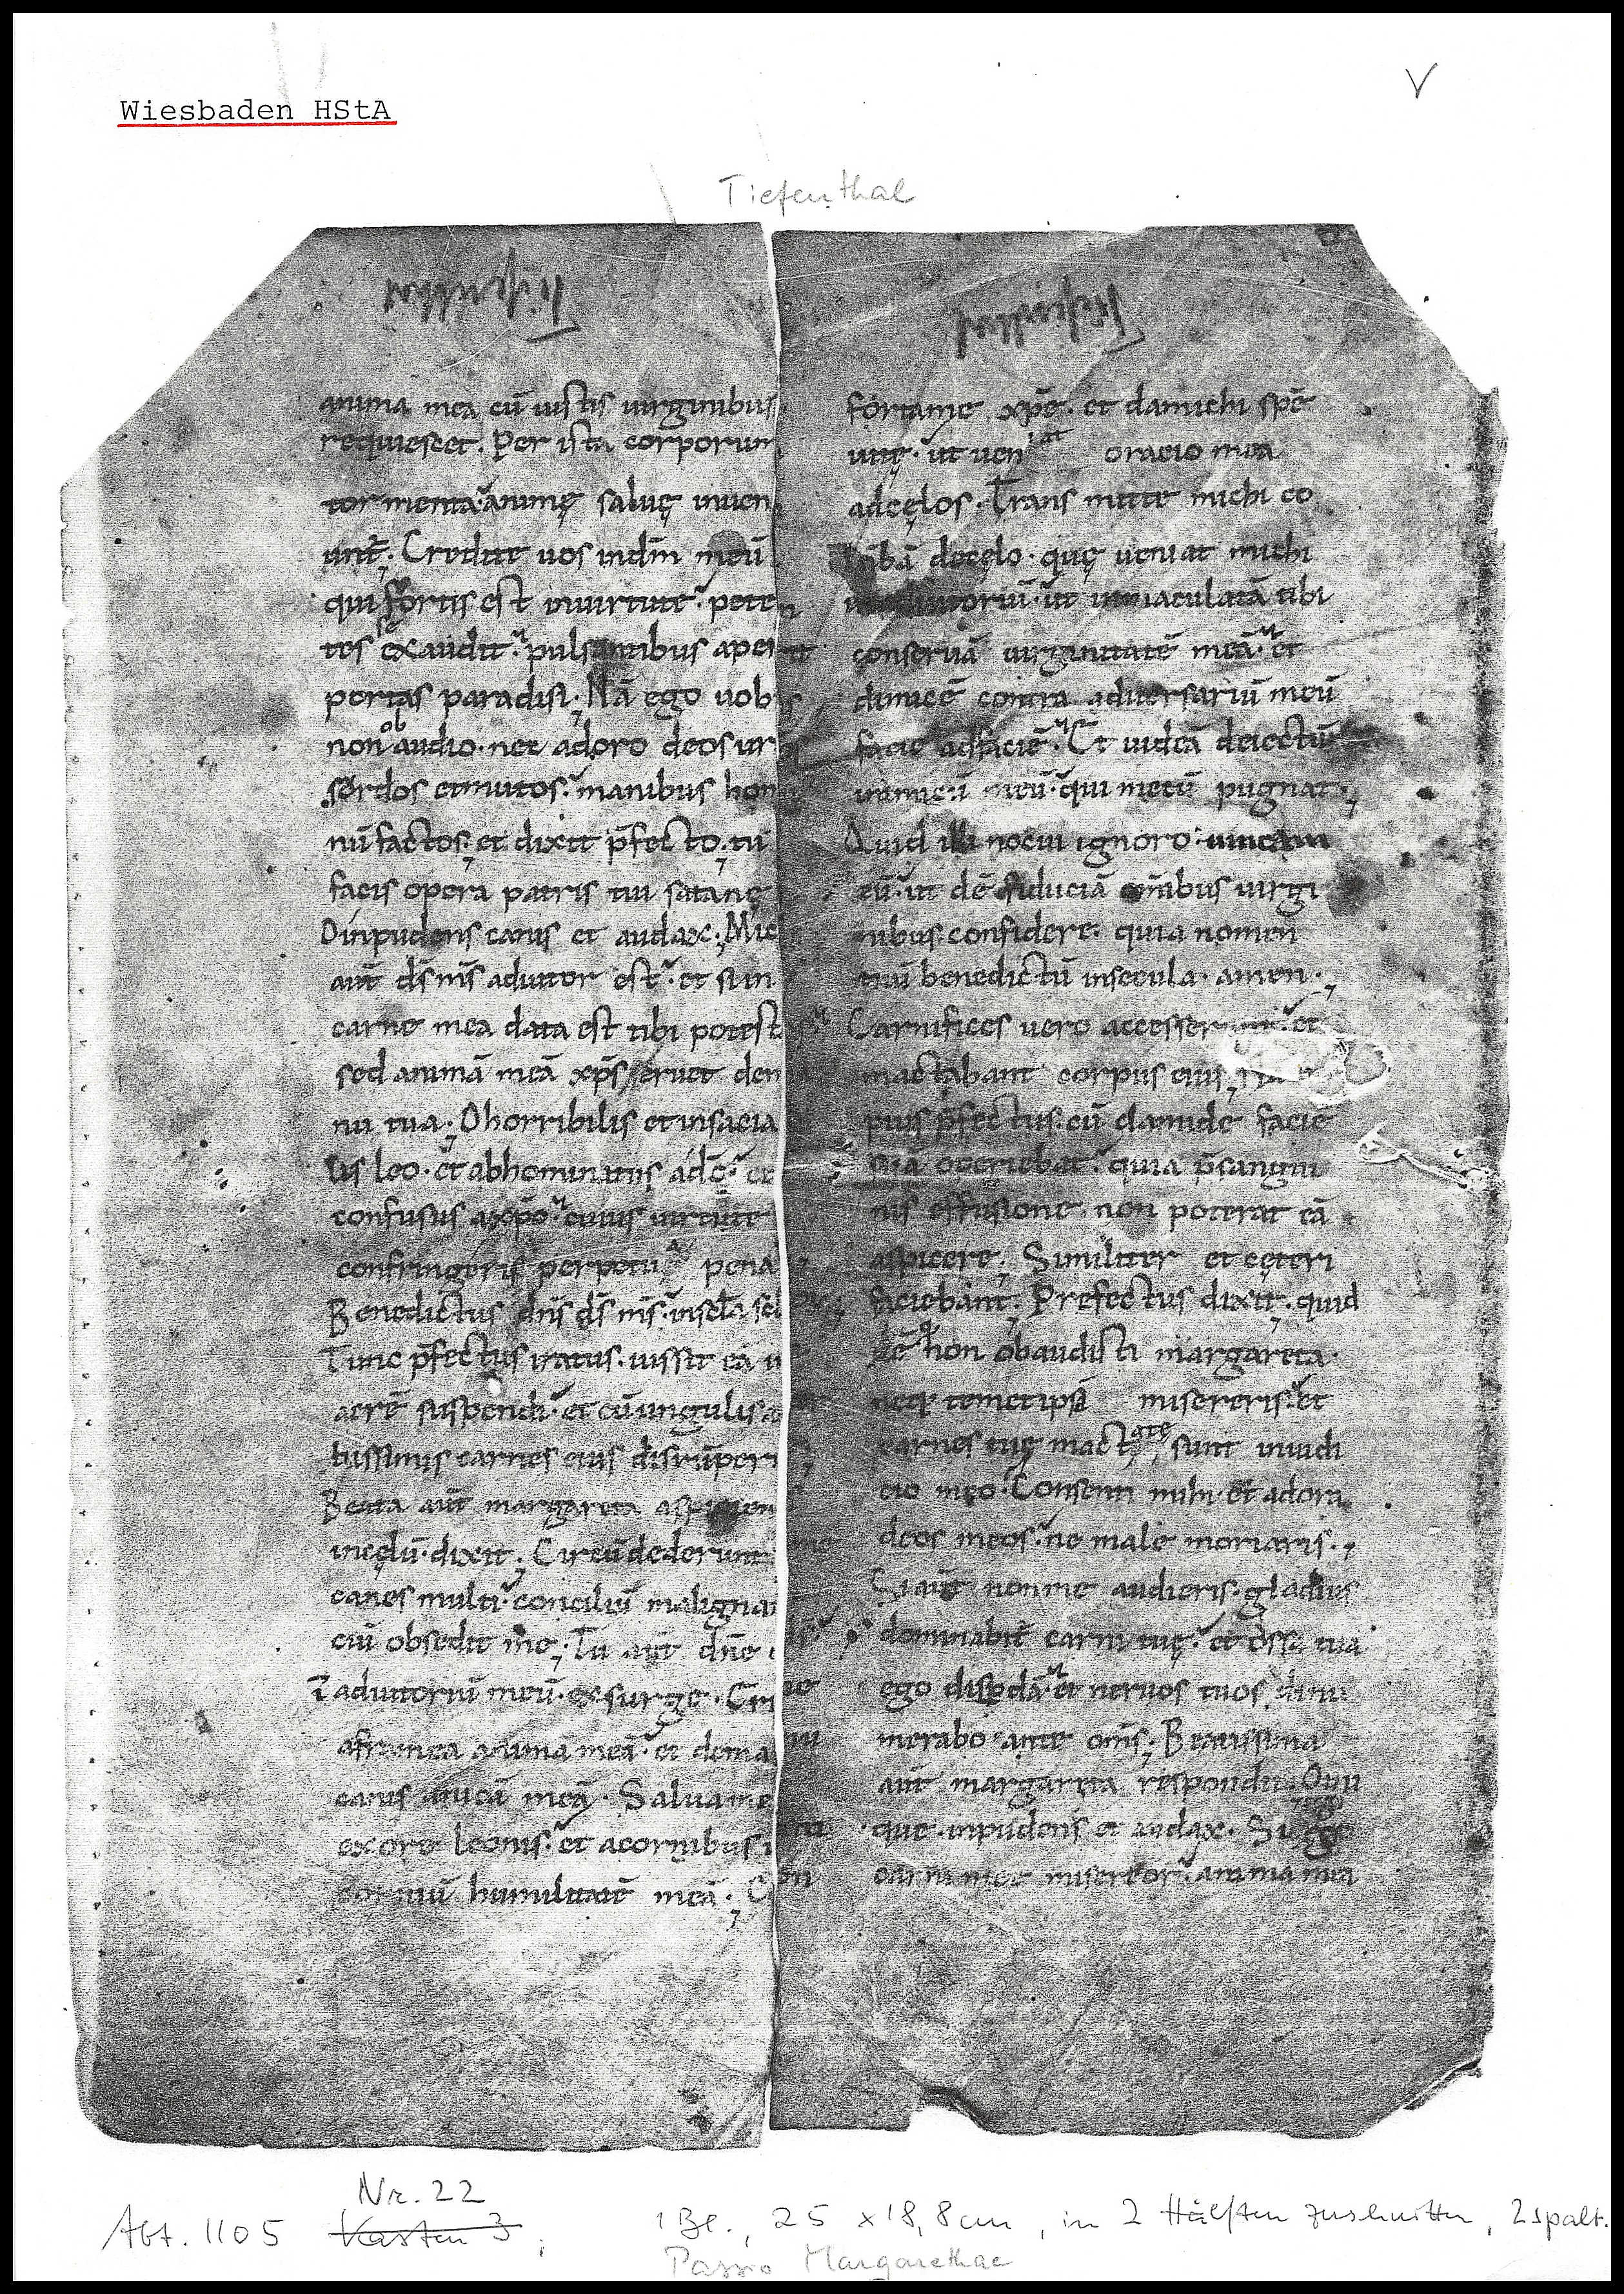 V
Wiesbaden HStA
Tiefenthal
Tiefenthal
Tiefenthal
anima mea cū iustis uirginibus
requiescet. Per ista corporum
tormenta animę saluę inuen
unt̄. Credite uos in dm̄ meū
qui fortis est in uirtute. peten
tes se exaudit. pulsantibus aperit
portas paradisi. Nā ego uobis
non ob audio. nec adoro deos
sordos et mutos. manibus homi
nū factos. et dixit p̄fecto. tu
facis opera patris tui satanę
O inpudens canis et audax. Mic
aūt ds̄ ms̄ adiutor est. et si in
carne mea data est tibi potest
sed animā meā xp̄s eruet de
nu tua. O horribilis et insacia
lis leo. et abhominatus a dō. et
confusus a xp̄o. cuius uirtute
confringeris perpetua pena
Benedictus dn̄s ds̄ ms̄. in scl̄a
Tunc p̄fectus iratus. iussit eā in
aerē suspendi. et cū ungulis
tissimis carnes eius disrūperi
Beata aūt margareta
in cęlū. dixit. Circū dederunt
canes multi. conciliū malignan
ciū obsedit me. Tu aūt dn̄e
adiutoriū meū. exsurge.
a framea anima meā. et de ma
canis unicā meā. Salua me
ex ore leonis. et a cornibus
corniū humilitatē meā. Con
fortame xp̄e. et da michi spē
uitę. ut oracio mea
ad cęlos. Transmitte michi co
lūbā de cęlo. quę ueniat michi
in adiutoriū. ut inmaculatā tibi
conseruā uirginitatē meā. et
dimicē contra aduersariū meū
facie ad faciē. Et uideā deiectū
inimicū meū. qui mecū pugnat.
Quid illi nocui ignoro. uincam
eū. ut dē fiduciā om̄ibus uirgi
nibus confidere. quia nomen
tuū benedictū in secula. amen.
Carnifices uero et
mactabant corpus eius
pius p̄fectus. cū clamide facie
suā operiebat. quia p̄ sangui
nis effusione non poterat eā
aspicere. Similiter et cęteri
faciebant. Prefectus dixit. quid
ē q non obaudisti margareta.
neq temetipsā misereris. et
carnes tuę mactatę sunt in iudi
cio meo. Consenti mihi et adora
deos meos. ne male moriaris.
Si aūt non me audieris. gladius
dominabit̄ carni tuę. et ossa tua
ego dispdā. et neruos tuos dinu
merabo ante om̄s. Beatissima
aūt margareta respondit. O ini
que. inpudens et audax. Si ego
carni mee misereor. anima mea
Nr. 22
Abt. 1105 Kasten 3 ; 1 Bl., 25 x 18,8 cm, in 2 Hälften zerschnitten, 2spalt.
Passio Margarethae